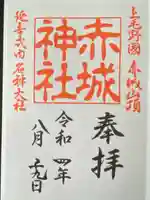 上毛野國 赤城山頂
赤城神社
延喜式内 名神大社
奉拝
令和四年
八月十九日